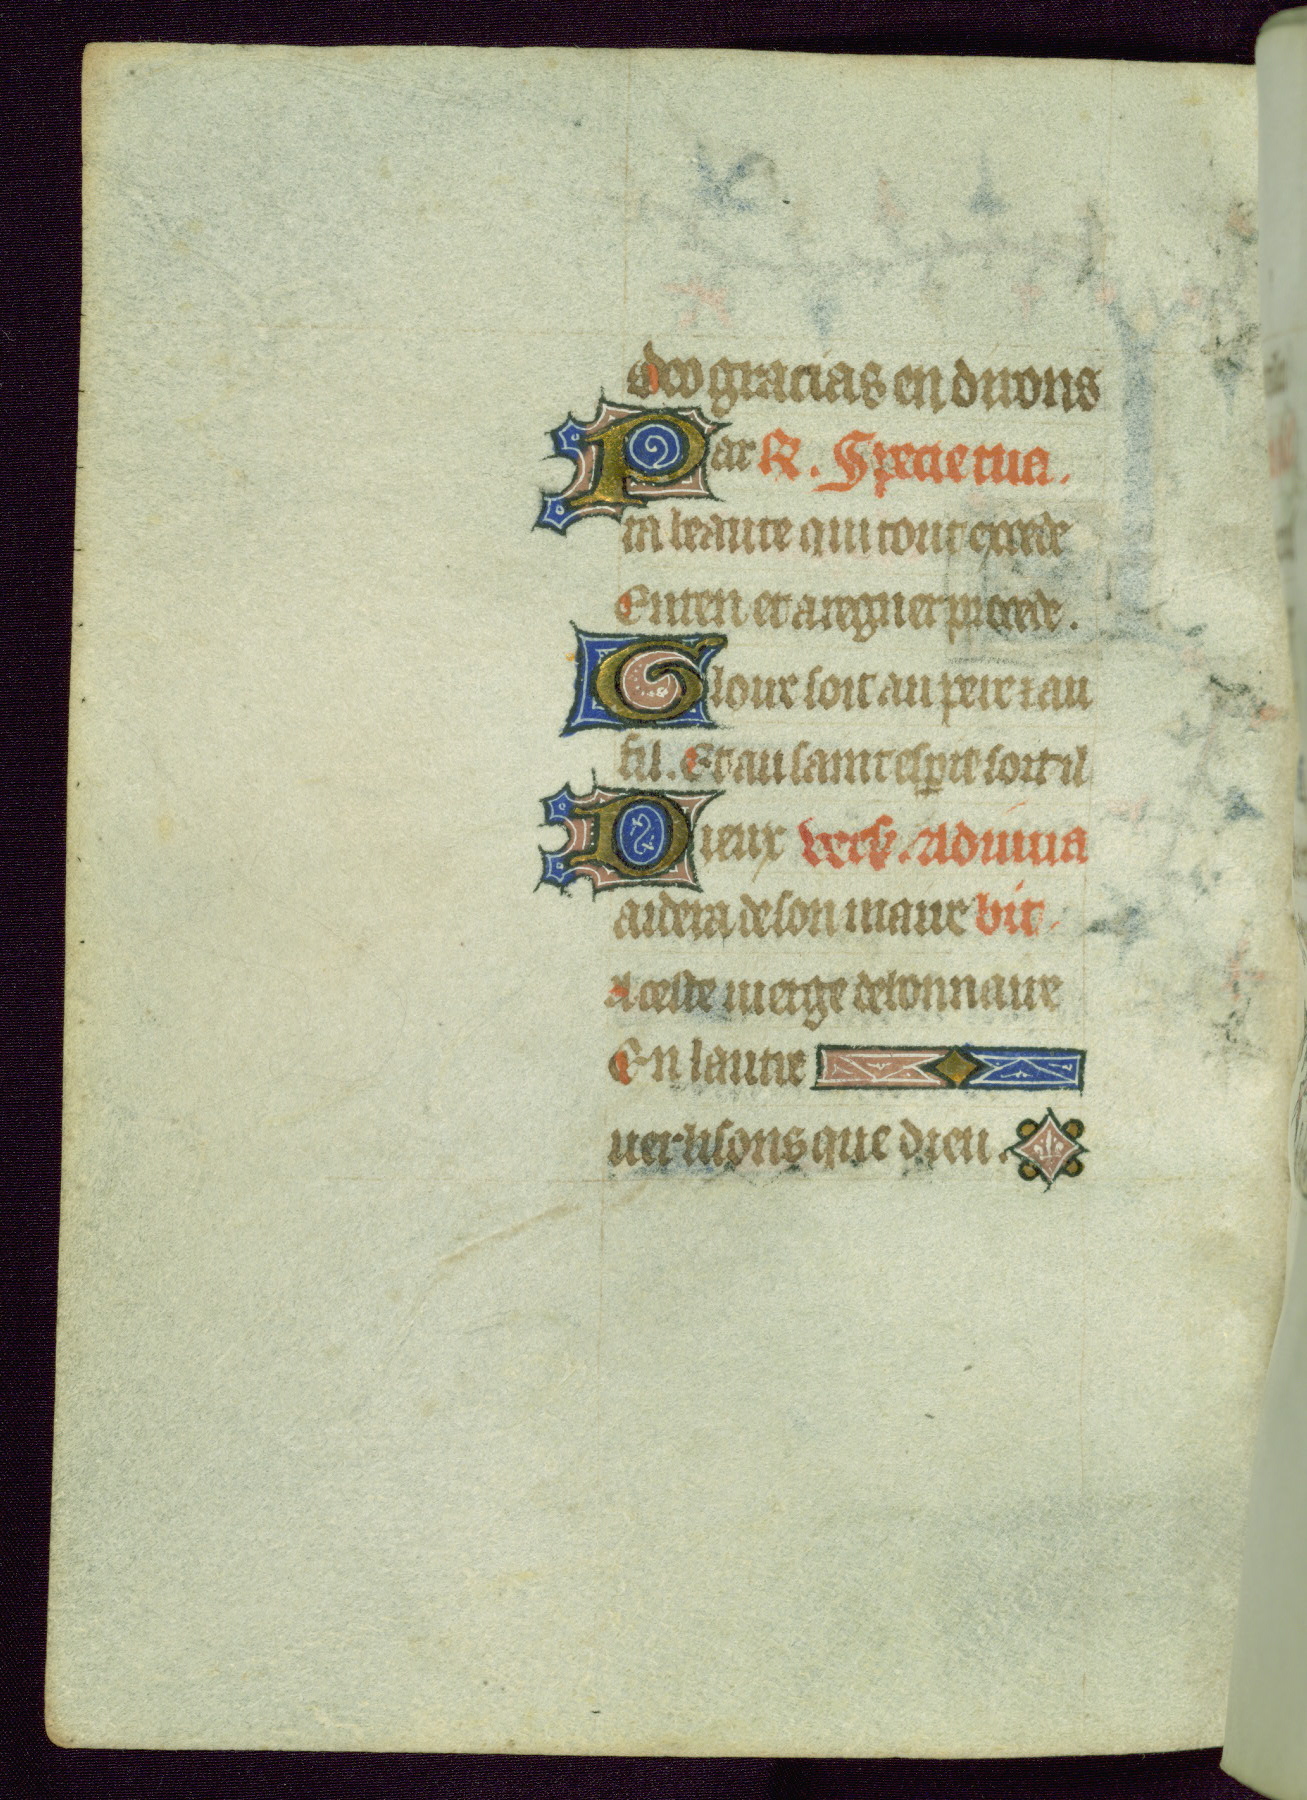 Deo gracias en dirons
Par R. Specie tua.
ta beaute qui tout excede
Enten et a regner procede.
Gloire soit au pere ⁊ au
fil. Et au saint esperit soit il
Dieux vers. Adiuva
aidera de son maire bit.
A ceste vierge debonnaire
En lautre
ver lisons que dieu.